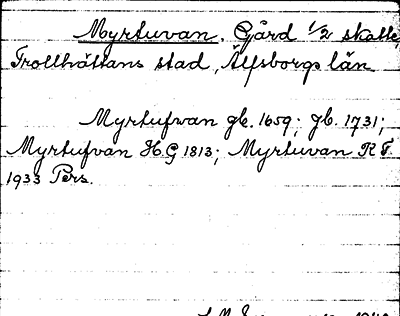 Myrtuvan. Gård 1/2 skatte,
Trollhättans stad, Älfsborgs län
Myrtufwan jb. 1659; jb. 1731;
Myrtufvan H.G 1813; Myrtuvan R.T.
1933 Pers.